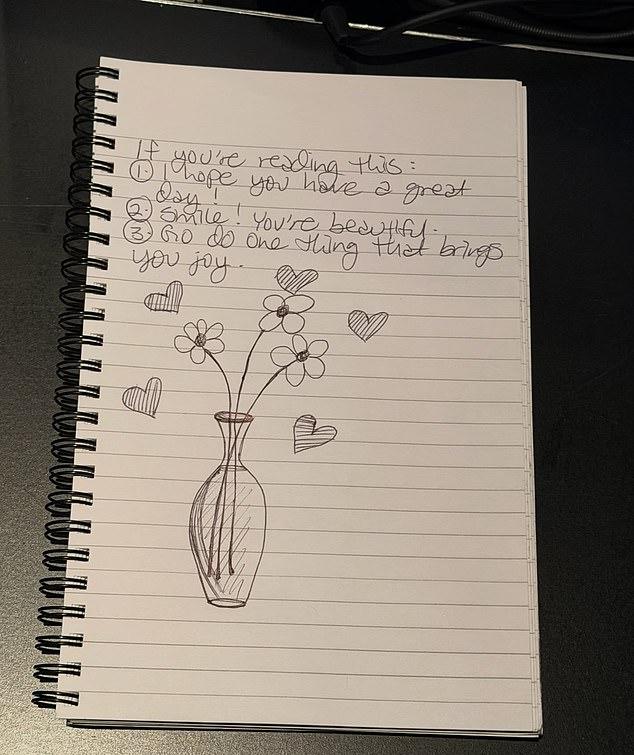 If you're reading this:
① I hope you have a great
day!
② Smile! You're beautiful.
③ Go do one thing that brings
you joy.